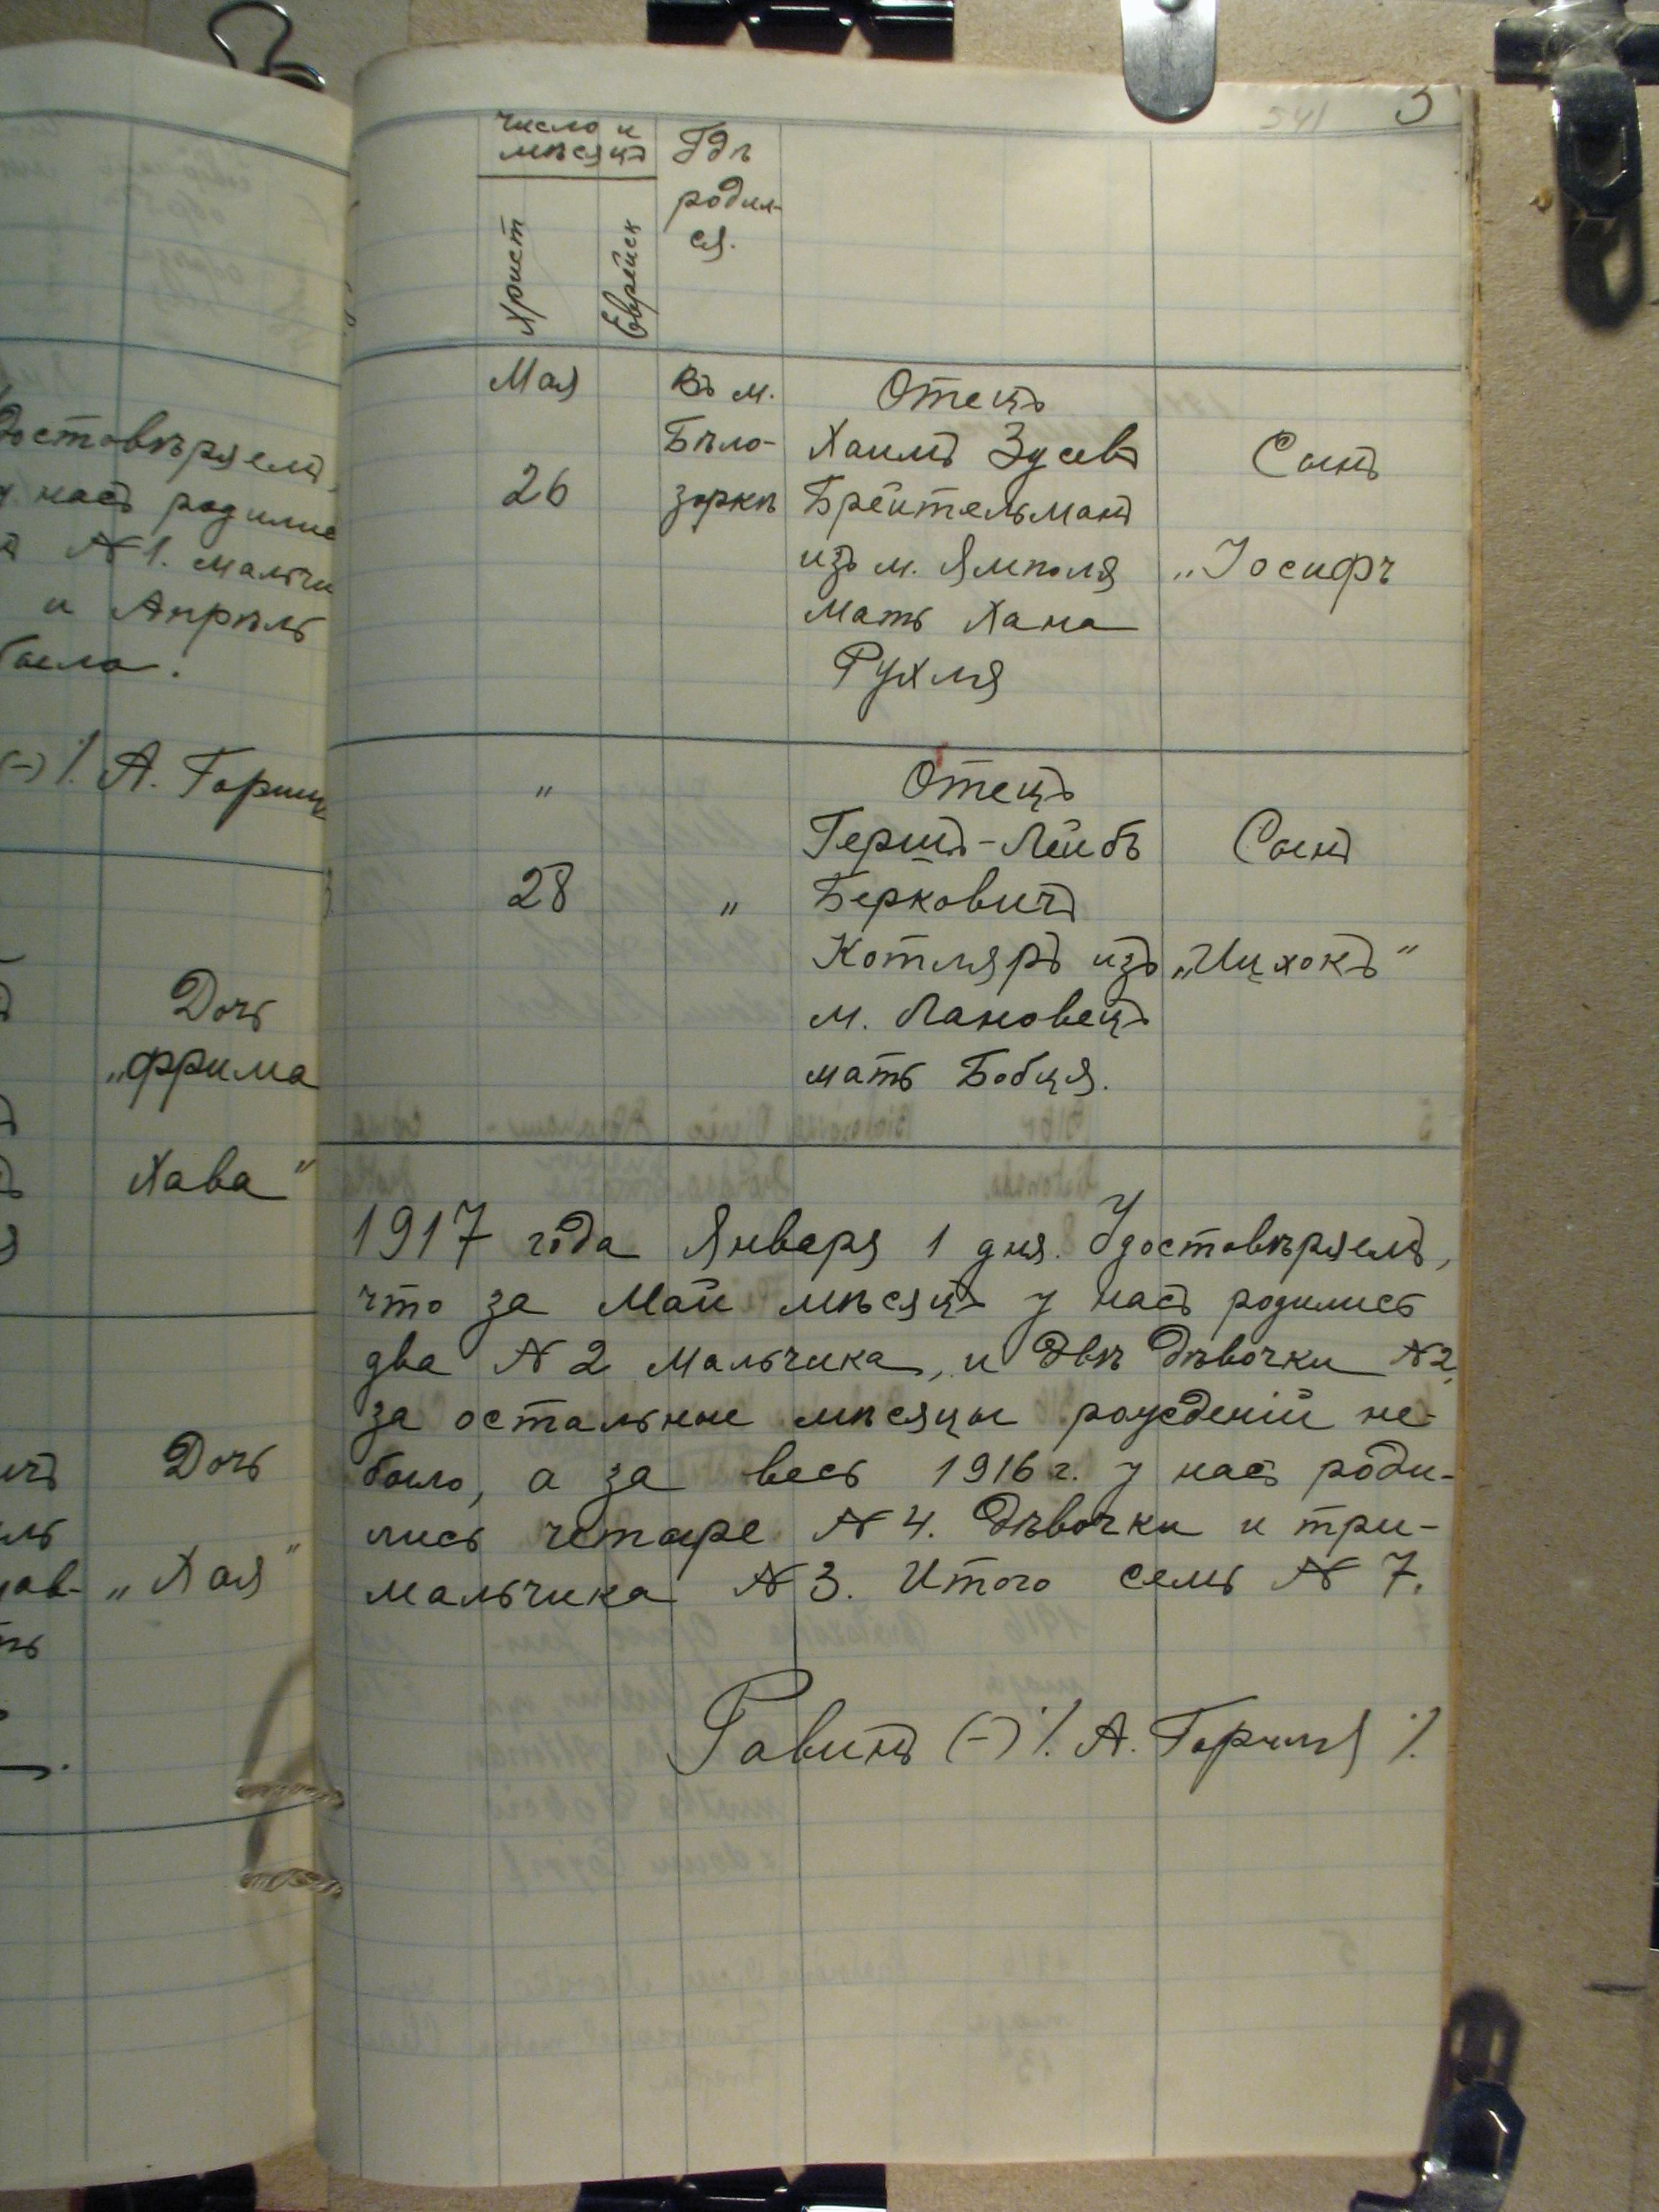 достовѣряемъ,
у насъ родилис
№ 1. мальчи
и Апрѣль
было.
(-) /. А. Горин
Дочь
„Фрима
Хава"
Дочь
„Хая"
541 3
Число и
мѣсяцъ
Христ
Еврейск
Гдѣ
родил-
ся.
Мая
26
Въ м.
Бѣло-
зоркѣ
Отецъ
Хаимъ Зусевъ
Брейтельманъ
изъ м. Ямполя
мать Хана
Рухля
Сынъ
„Іосифъ
"
28
"
Отецъ
Гершъ-Лейбъ
Берковичъ
Котляръ изъ
м. Лановецъ
мать Бобця.
Сынъ
„Ицхокъ"
1917 года Января 1 дня. Удостовѣряемъ,
что за Май мѣсяцъ у насъ родились
два № 2 мальчика, и двѣ дѣвочки № 2,
за остальные мѣсяцы рожденій не-
было, а за весь 1916 г. у насъ роди-
лись четыре № 4. дѣвочки и три-
мальчика № 3. Итого семь № 7.
Равинъ (-) /. А. Горинъ /.